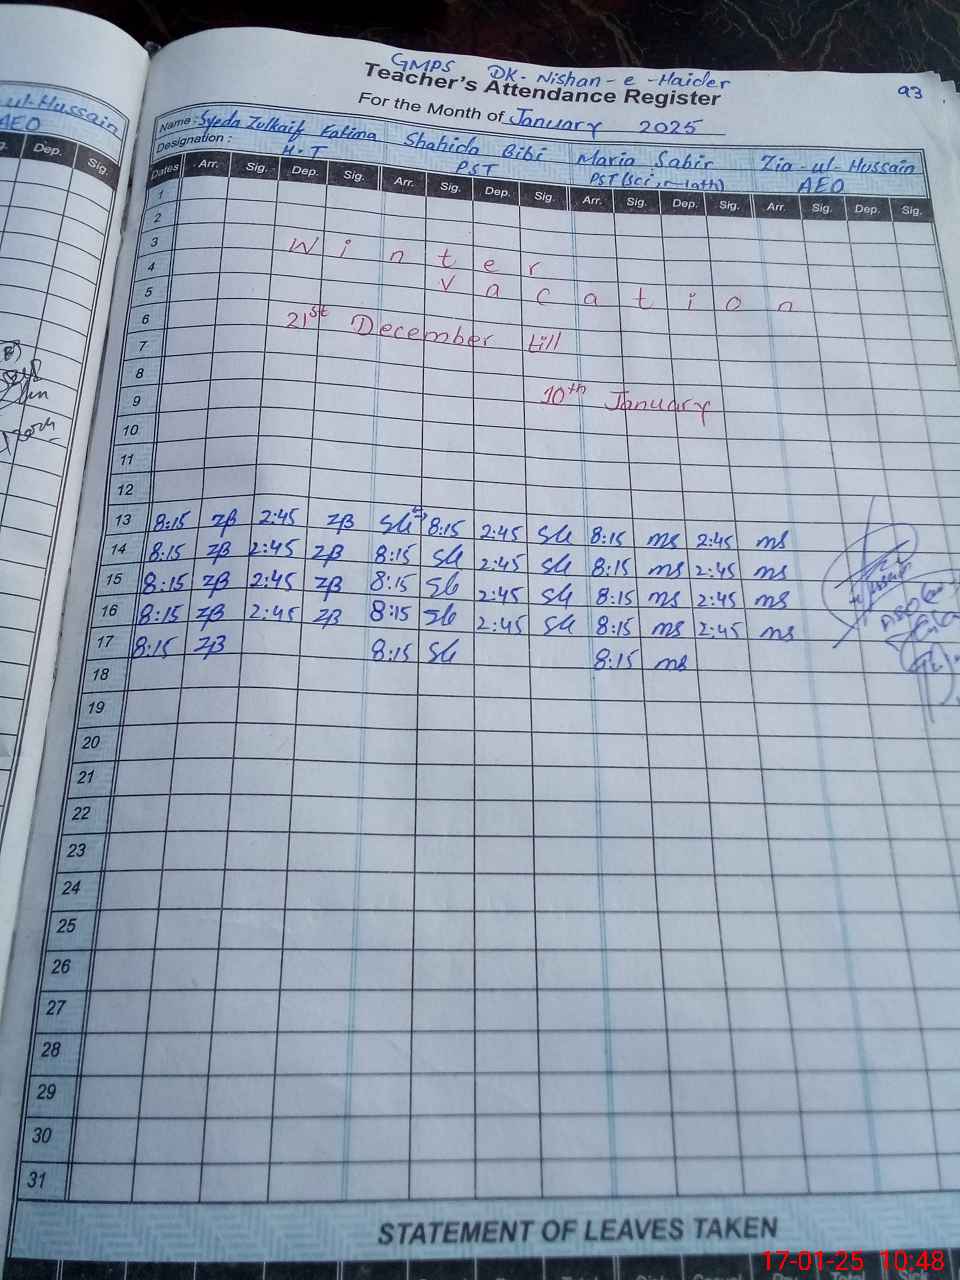 GMPS DK-Nishan-e-Haider
93
Teacher's Attendance Register
For the Month of January 2025
ul-Hussain
AEO
Dep. Sig.
Name: Syeda Zulkaif Fatima Shahida Bibi Maria Sabir Zia-ul-Hussain
Designation: H.T PST PST(Sci, Math) AEO
Dates Arr. Sig. Dep. Sig. Arr. Sig. Dep. Sig. Arr. Sig. Dep. Sig. Arr. Sig. Dep. Sig.
1
2
3 Winter
4
5 Vacation
6 21st December till
7
8
9 10th January
10
11
12
13 8:15 ZB 2:45 ZB 8:15 2:45 8:15 ms 2:45 ms
14 8:15 ZB 2:45 ZB 8:15 2:45 8:15 ms 2:45 ms
15 8:15 ZB 2:45 ZB 8:15 Sb 2:45 8:15 ms 2:45 ms
16 8:15 ZB 2:45 ZB 8:15 Sb 2:45 8:15 ms 2:45 ms
17 8:15 ZB 8:15 8:15 ms
18
19
20
21
22
23
24
25
26
27
28
29
30
31
STATEMENT OF LEAVES TAKEN
17-01-25 10:48